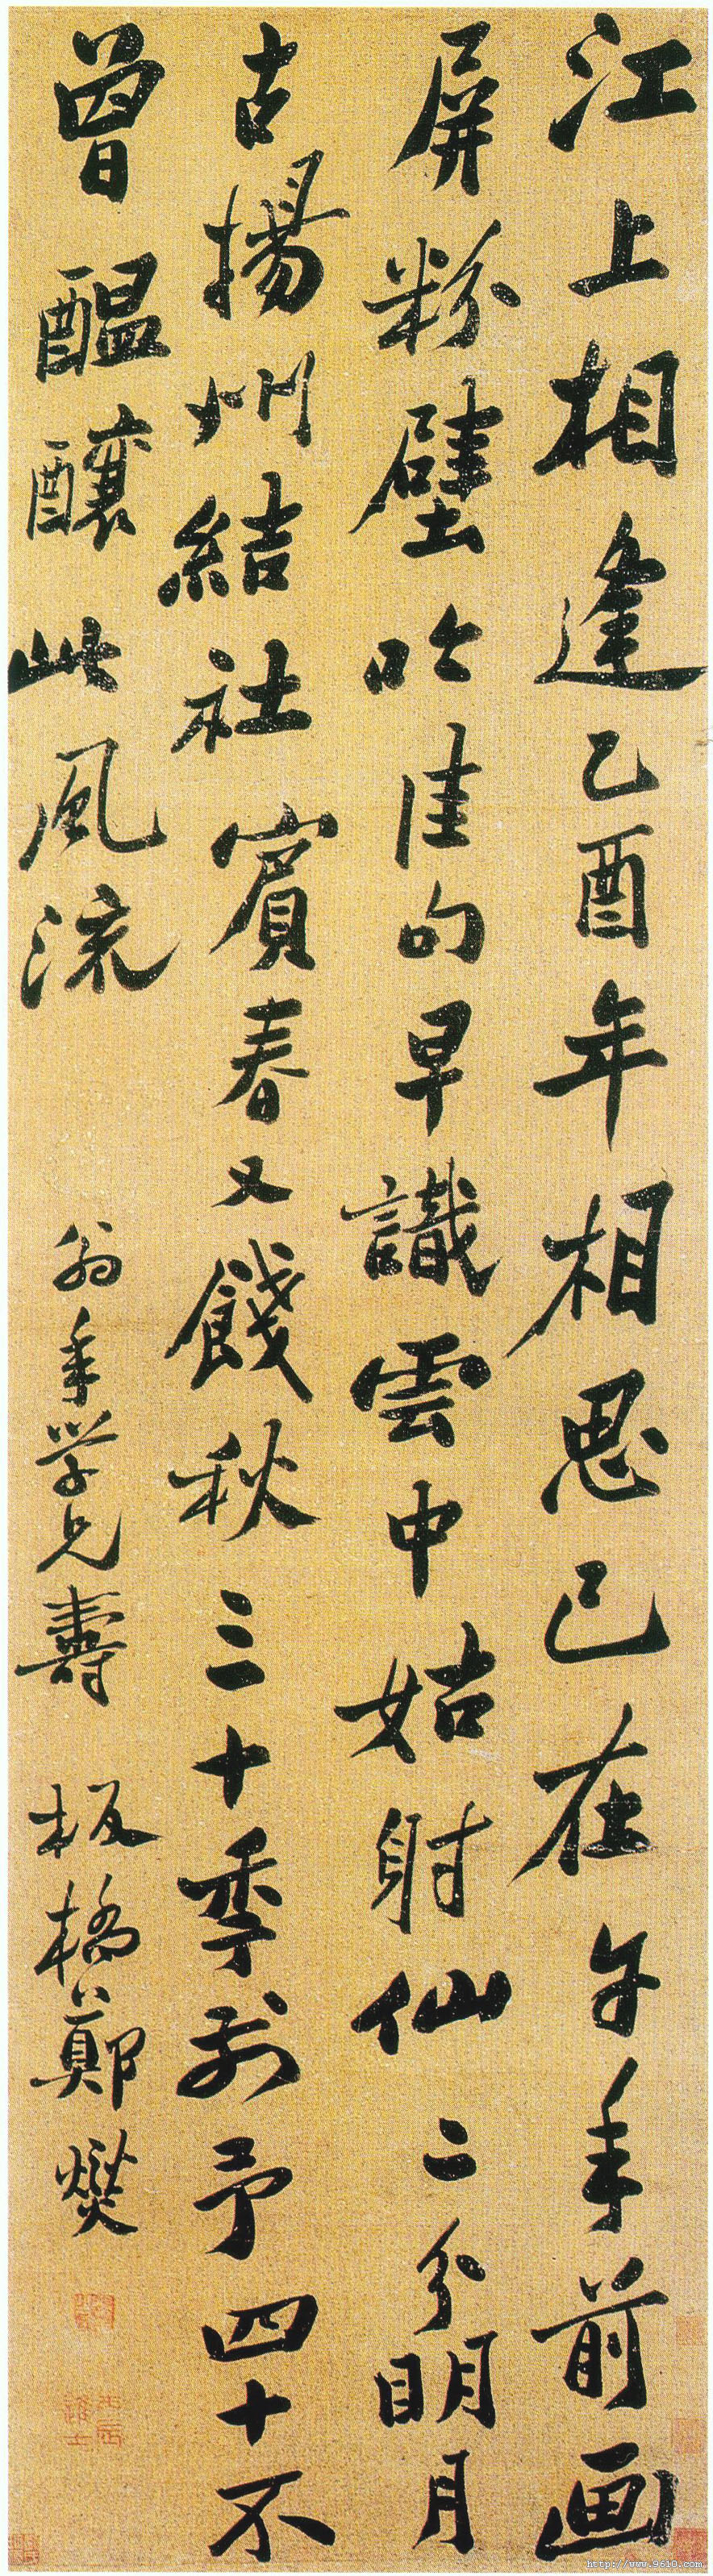 江上相逢乙酉年相思已在午年前画
屏粉壁吟佳句早識雲中姑射仙二分明月
古揚州結社賓春又餞秋三十秊前予四十不
曾醞釀此風流 翁年学兄壽 板橋鄭燮
丙辰進士
http://www.9610.com